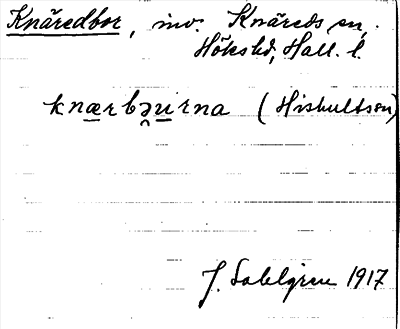 Knäredbor, inv. Knäreds sn,
Höks hd, Hall. l.
knærbəurna (Hishultson)
J. Sahlgren 1917